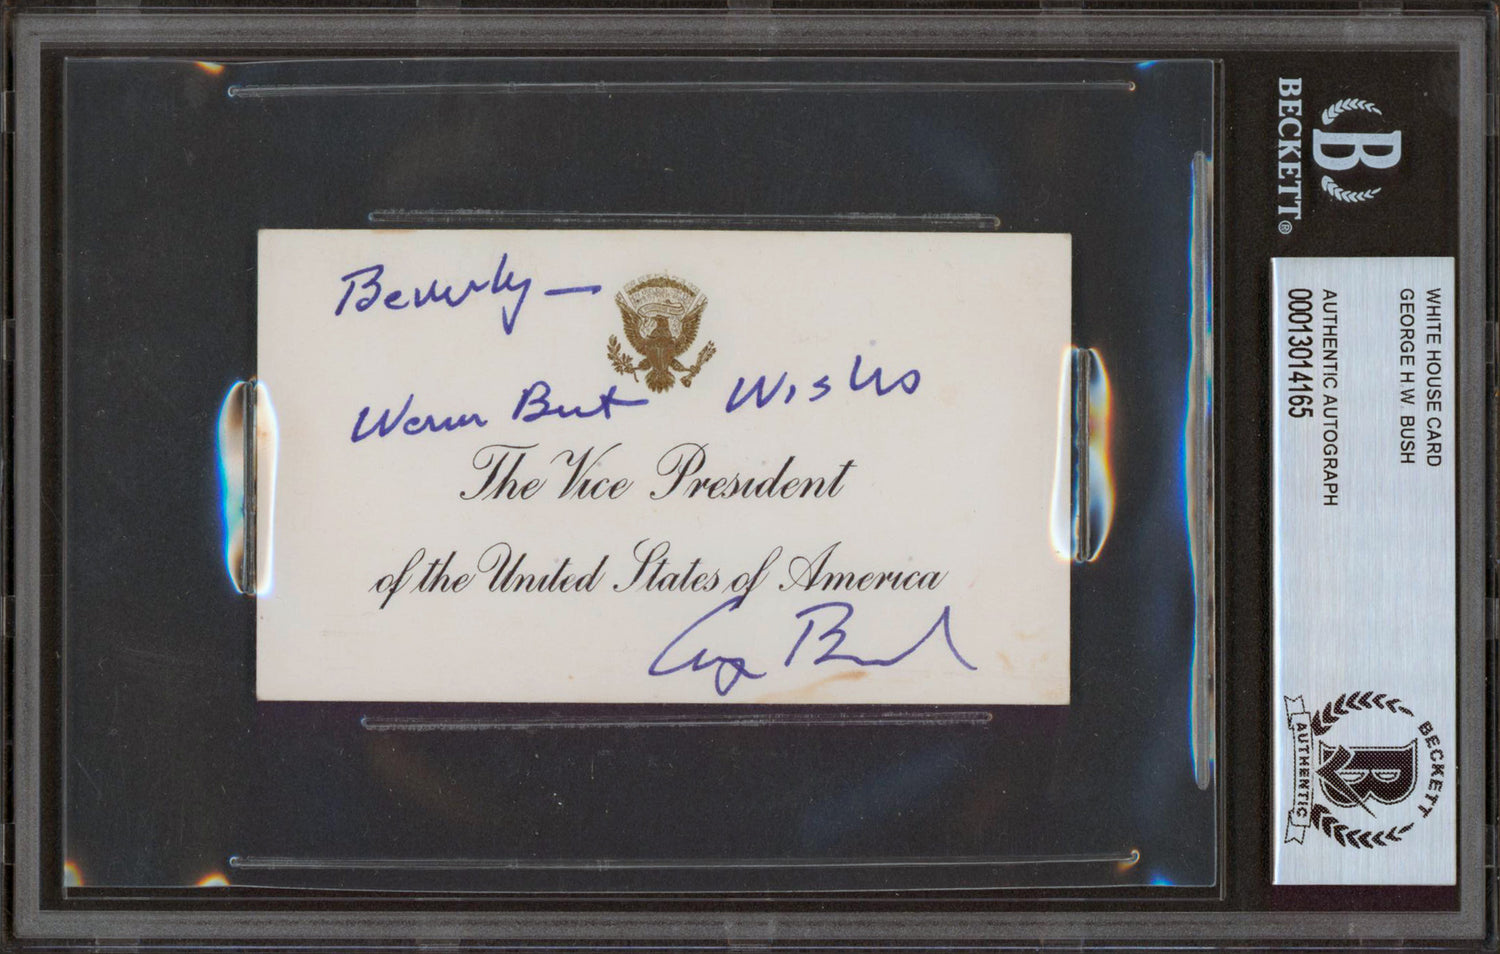 Beverly —
Warm Best Wishes
The Vice President
of the United States of America
George Bush
BECKETT®
B
WHITE HOUSE CARD
GEORGE H.W. BUSH
AUTHENTIC AUTOGRAPH
00013014165
BECKETT
B
AUTHENTIC